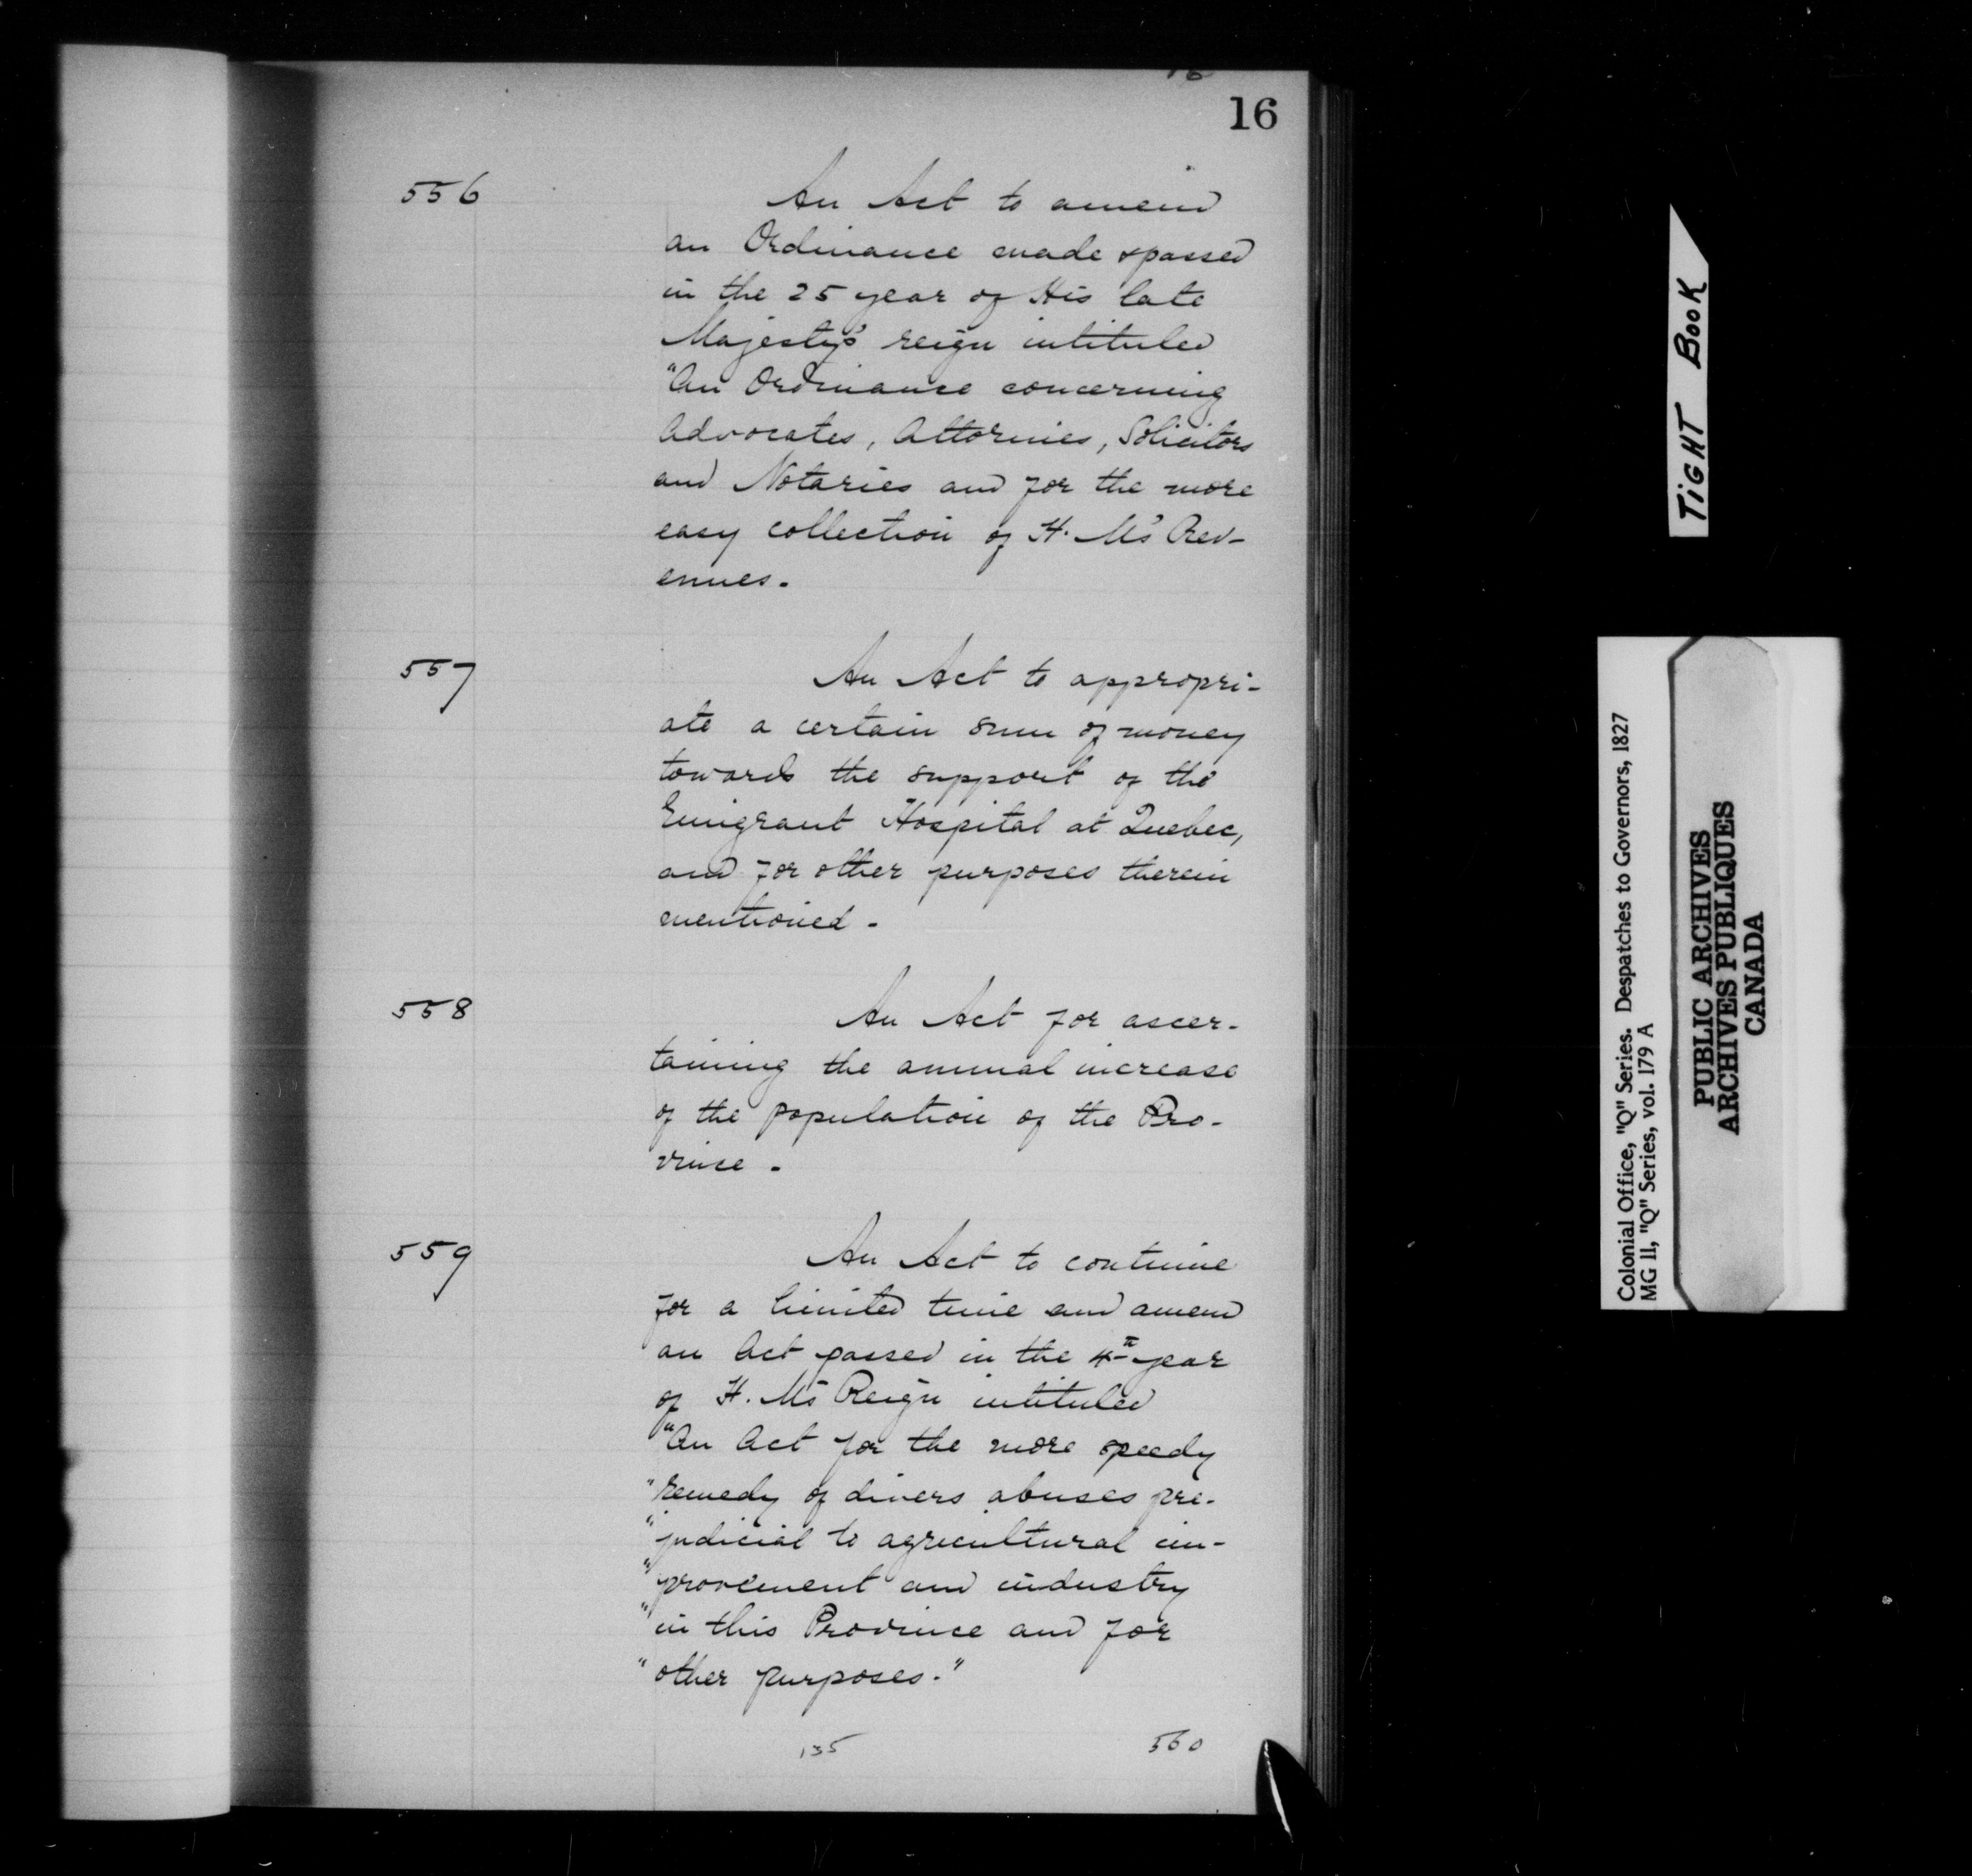 16
556
An Act to amend
an Ordinance made & passed
in the 25 year of His late
Majesty's reign intituled
"An Ordinance concerning
Advocates, Attornies, Solicitors
and Notaries and for the more
easy collection of H. M's Rev-
enues.
557
An Act to appropri-
ate a certain sum of money
towards the support of the
Emigrant Hospital at Quebec,
and for other purposes therein
mentioned.
558
An Act for ascer-
taining the annual increase
of the population of the Pro-
vince.
559
An Act to continue
for a limited time and amend
an Act passed in the 4th year
of H. M's Reign intituled
"An Act for the more speedy
"remedy of divers abuses pre-
"judicial to agricultural im-
"provement and industry
"in this Province and for
"other purposes."
135
560
TIGHT BOOK
Colonial Office, "Q" Series. Despatches to Governors, 1827
MG 11, "Q" Series, vol. 179 A
PUBLIC ARCHIVES
ARCHIVES PUBLIQUES
CANADA